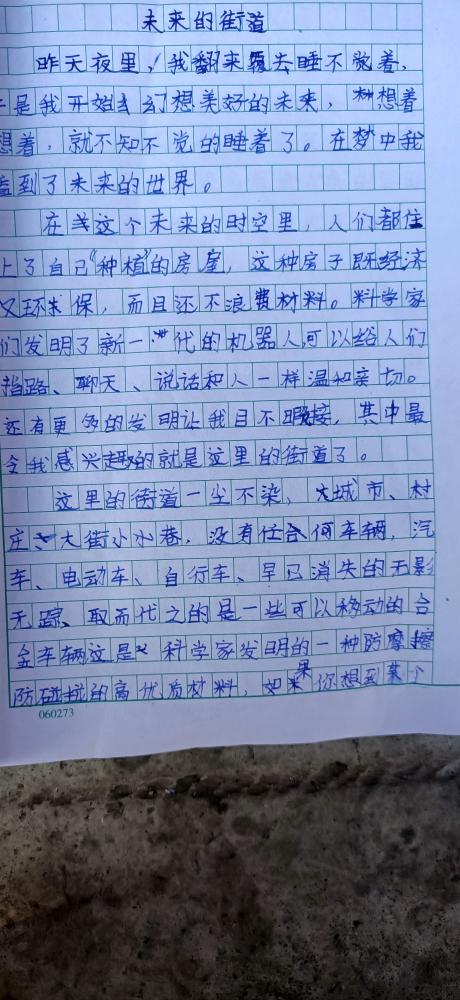 未来的街道
昨天夜里，我翻来覆去睡不觉着，
是我开始幻想美好的未来，想着
想着，就不知不觉的睡着了。在梦中我
看到了未来的世界。
在这个未来的时空里，人们都住
上了自己“种植”的房屋，这种房子既经济
又环保，而且还不浪费材料。科学家
们发明了新一代的机器人可以给人们
指路、聊天、说话和人一样温和亲切。
还有更多的发明让我目不暇接，其中最
令我感兴趣的就是这里的街道了。
这里的街道一尘不染，大城市、村
庄、大街小巷，没有任何车辆，汽
车、电动车、自行车、早已消失的无影
无踪、取而代之的是一些可以移动的合
金车辆这是科学家发明的一种防摩擦
防碰撞的高优质材料，如果你想到某个
060273